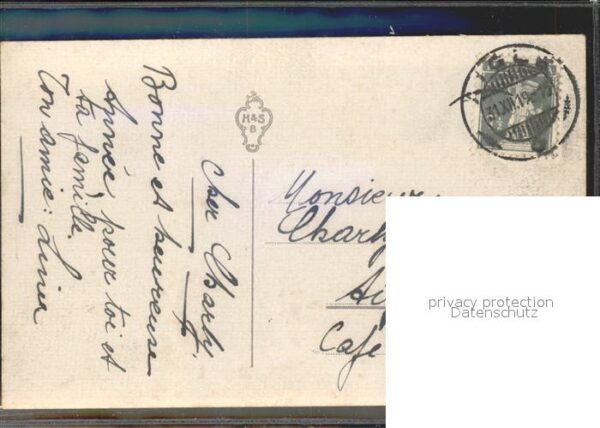 Cher Charly
Bonne et heureuse
Année pour toi et
ta famille.
Ton amie: Lina
H&S
B
Monsieur
Charly
Café
31.XII.19
privacy protection
Datenschutz